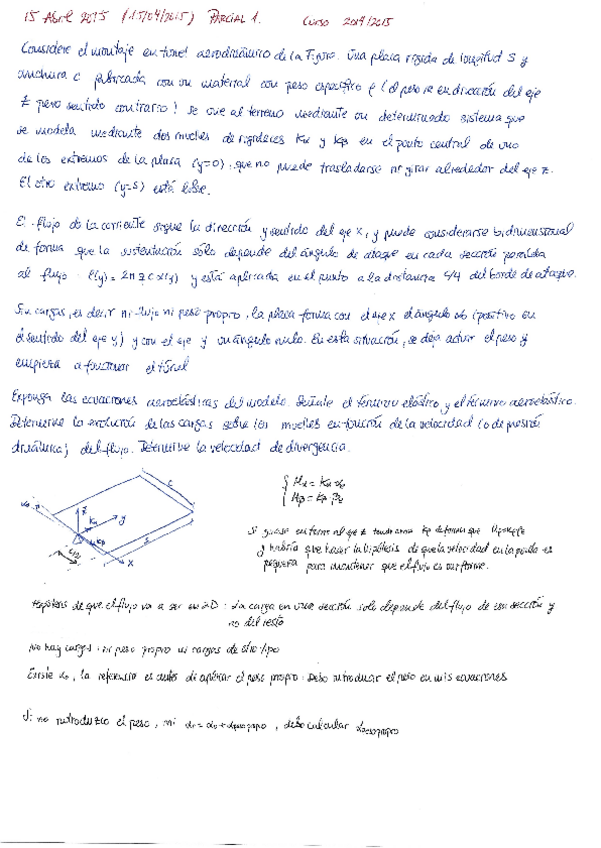 15 Abril 2015 (15/04/2015) PARCIAL 1. Curso 2014/2015
Considere el montaje en túnel aerodinámico de la Figura. Una placa rígida de longitud S y
anchura c fabricada con un material con peso específico ρ (el peso va en dirección del eje
z pero sentido contrario) se une al terreno mediante un determinado sistema que
se modela mediante dos muelles de rigideces Kα y Kβ en el punto central de uno
de los extremos de la placa (y=0), que no puede trasladarse ni girar alrededor del eje z.
El otro extremo (y=s) está libre.
El flujo de la corriente sigue la dirección y sentido del eje X, y puede considerarse bidimensional
de forma que la sustentación sólo depende del ángulo de ataque en cada sección paralela
al flujo l(y) = 2π q c α(y) y está aplicada en el punto a la distancia c/4 del borde de ataque.
Sin cargas, es decir ni flujo ni peso propio, la placa forma con el eje x el ángulo α0 (positivo en
el sentido del eje y) y con el eje y un ángulo nulo. En esta situación, se deja actuar el peso y
empieza a funcionar el túnel
Exponga las ecuaciones aeroelásticas del modelo. Señale el término elástico y el término aeroelástico.
Determine la evolución de las cargas sobre los muelles en función de la velocidad (o de presión
dinámica) del flujo. Determine la velocidad de divergencia.
α0 z Kα y Kβ x c s c/2
Mα = Kα
Mβ = Kβ
Si girase en torno al eje z tendríamos
y habría que hacer la hipótesis de que la velocidad en la punta es
pequeña para mantener que el flujo es uniforme.
Hipótesis de que el flujo va a ser en 2D: La carga en una sección solo depende del flujo de esa sección y
no del resto
No hay cargas: ni peso propio ni cargas de otro tipo
Existe α0, la referencia es antes de aplicar el peso propio. Debo introducir el peso en mis ecuaciones
Si no introduzco el peso, mi = α0 + αpeso propio, debo calcular αpeso propio